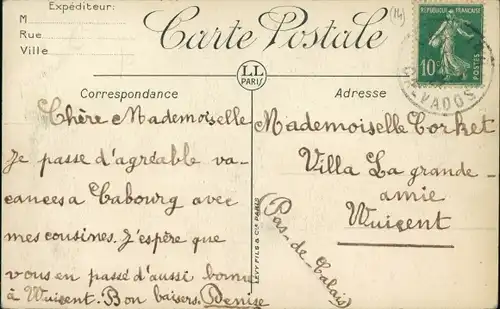 Expéditeur:
M
Rue
Ville
(14)
Carte Postale
RÉPUBLIQUE FRANÇAISE
10c
POSTES
LL
PARIS
Correspondance
Adresse
Chère Mademoiselle
Je passe d'agréable va-
cances a Cabourg avec
mes cousines. J'espère que
vous en passé d'aussi bonne
à Wuigent. Bon baisers. Denise
LEVY FILS & Cie PARIS
Mademoiselle Corket
Villa La grande-
amie
Wuigent
(Pas-de-Calais)